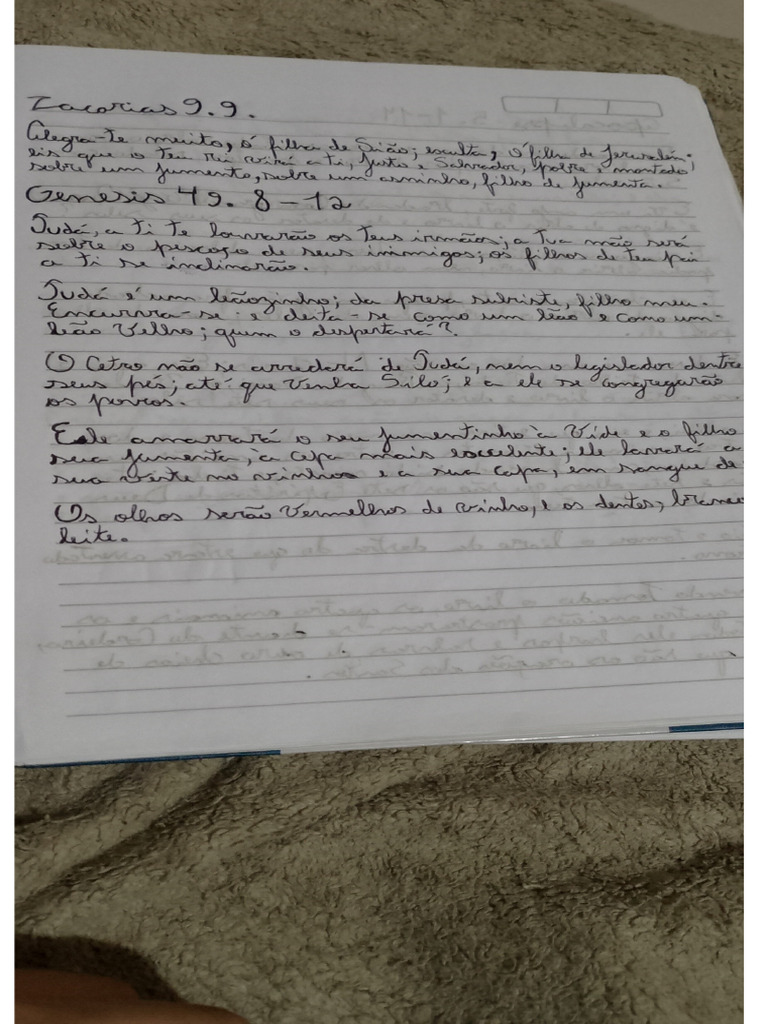 Zacarias 9.9.
Alegra-te muito, ó filha de Sião; exulta, ó filha de Jerusalém;
eis que o teu Rei virá a ti, Justo e Salvador, pobre e montado
sobre um jumento, sobre um asninho, filho de jumenta.
Genesis 49. 8-12
Judá, a ti te louvarão os teus irmãos; a Tua mão será
sobre o pescoço de seus inimigos; os filhos de teu pai
a ti se inclinarão.
Judá é um leãozinho; da presa subiste, filho meu.
Encurva-se e deita-se como um leão e como um
leão Velho; quem o despertará?
O Cetro não se arredará de Judá, nem o legislador dentre
seus pés; até que Venha Siló; e a ele se congregarão
os povos.
Ele amarrará o seu jumentinho à Vide e o filho
sua jumenta, à cepa mais excelente; ele lavará a
sua veste no vinho e a sua capa, em sangue de
Os olhos serão Vermelhos de vinho, e os dentes, branc
leite.